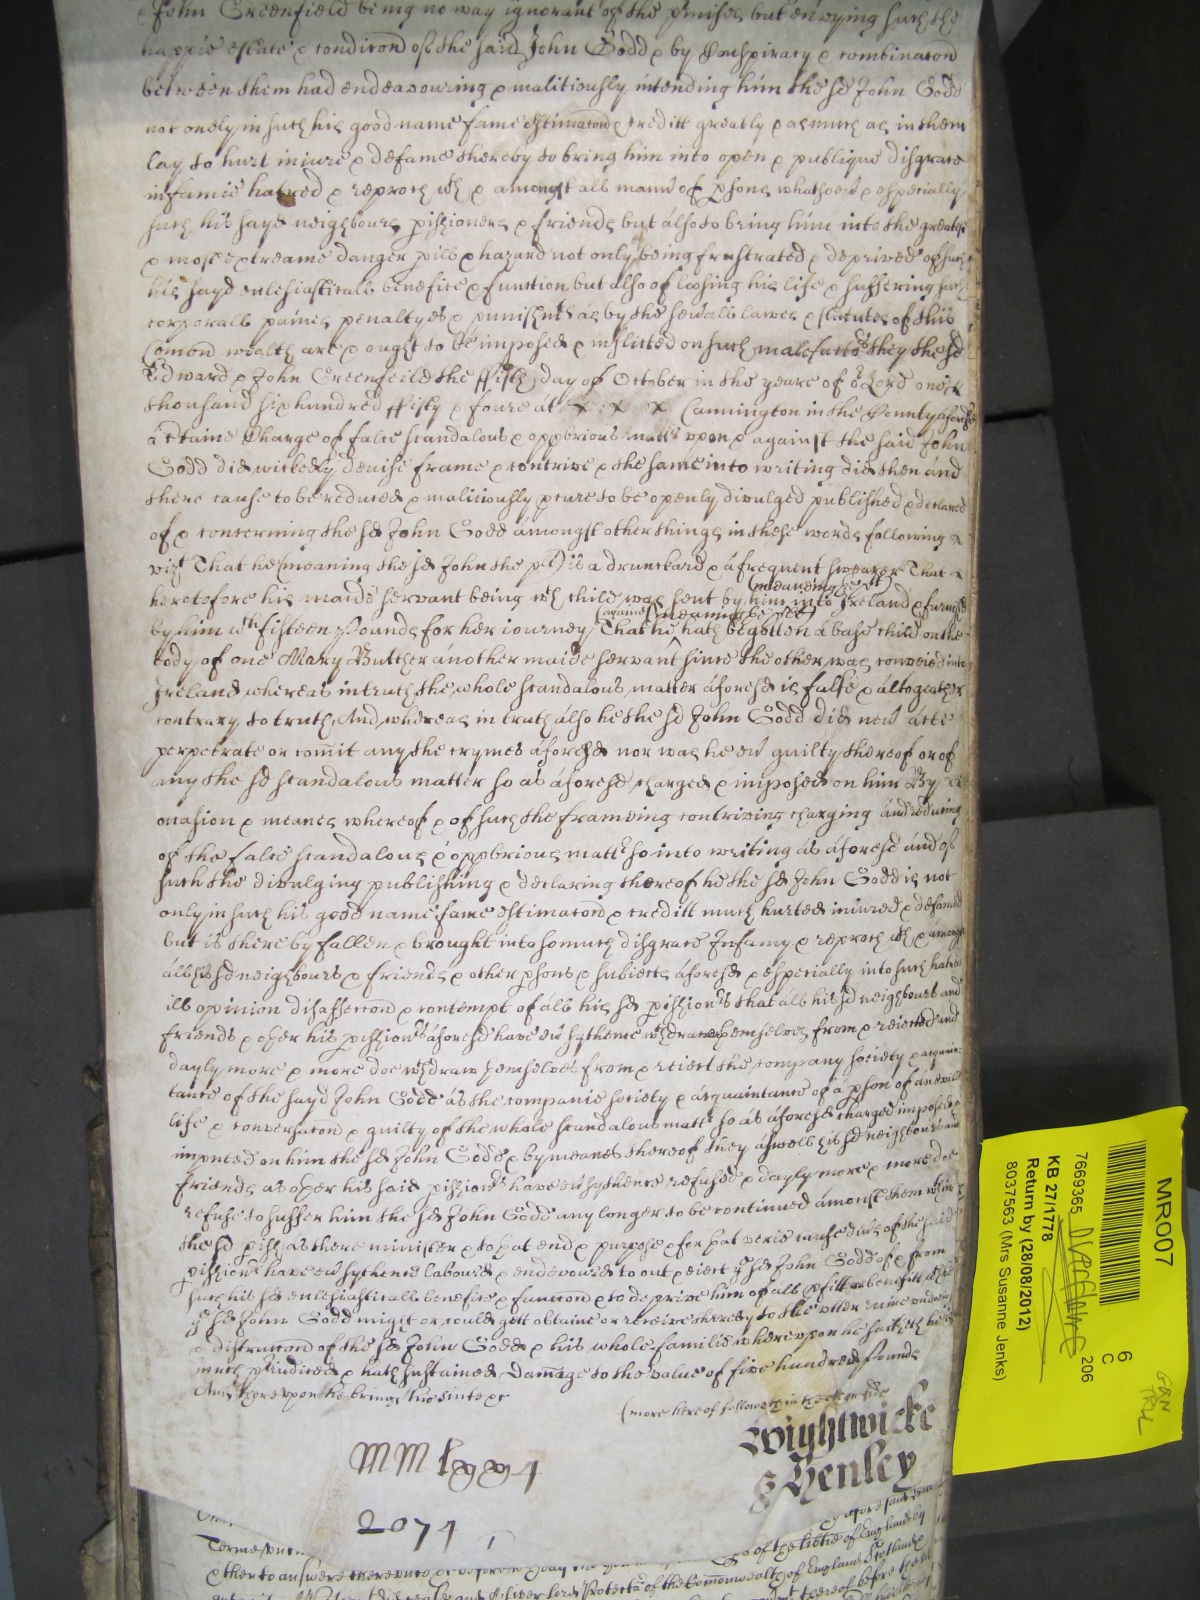 John Greenfield being no way ignorant of the p'misses but envying such the
happie estate & condicon of the said John Godd & by Conspiracy & combinacon
between them had endeavouring & malitiously intending him the sd John Godd
not onely in such his good name fame estimacond & creditt greatly & as much as in them
lay to hurt injure & defame thereby to bring him into open & publique disgrace
infamie hatred & reproch wth & amongst all mann' of p'sons whatsoev' & especially
such his sayd neighbours p'ishioners & friends but also to bring him into the greatest
& most extreame danger p'ill & hazard not only being frustrated & deprived of such
his sayd eclesiasticall benefice & function but also of loosing his life & suffering such
corporall paines penaltyes & punishmts as by the sev'all lawes & statutes of this
Comon wealth are & ought to be imposed & inflicted on such malefactors they the sd
Edward & John Greenfeild the ffifth day of October in the yeare of or Lord one
thousand six hundred ffifty & foure at x x x Cannington in the County aforesd
a certaine Charge of false scandalous & opprbrious matts upon & against the said John
Godd did wickedly devise frame & contrive & the same into writing did then and
there cause to be reduced & malitiously p'cure to be openly divulged published & declared
of & concerning the sd John Godd amongst other things in these words following
vizt That he (meaning the sd John the plt) is a drunckard & a frequent swearer That
heretofore his maide servant being wth child was sent by him into Ireland & furnished
(meaneing ye plt)
by him wth fifteen Pounds for her journey That he hath begotten a base child on the
(againe) (meaning ye plt)
body of one Mary Butcher another maide servant since the other was conveied into
Ireland whereas in truth the whole scandalous matter aforesd is false & altogeather
contrary to truth And whereas in truth also he the sd John Godd did nev' acte
perpetrate or comit any the crymes aforesd nor was he ev' guilty thereof or of
any the sd scandalous matter so as aforesd charged & imposed on him By
occasion & meanes whereof & of such the frameing contriving charging and reducing
of the false scandalous & opprbrious mattr so into writing as aforesd and of
such the divulging publishing & declaring thereof he the sd John Godd is not
only in such his good name fame estimacond & creditt much hurted injured & defamed
but is thereby fallen & brought into so much disgrace Infamy & reproch wth & amongst
all his sd neighbours & friends & other p'sons & subiects aforesd & especially into such hatred
ill opinion disaffeccond & contempt of all his sd p'ishioners that all his sd neighbours and
friends & other his p'ishioners aforesd have ev' sythence wthdrawen themselves from & reiected and
dayly more & more doe wthdraw themselves from & reiect the company society & acquain
tance of the sayd John Godd as the companie society & acquaintance of a p'son of an evill
life & conversacond & guilty of the whole scandalous mattr so as aforesd charged imposed &
imputed on him the sd John Godd & by meanes thereof they aswell his sd neighbours and
friends as other his said p'ishioners have ev' sythence refused & dayly more & more doe
refuse to suffer him the sd John Godd any longer to be continued amonst them wthin
the sd p'ish as there minister & to that end & purpose & for that verie cause divs of the said
p'ishioners have ev' sythence laboured & endevoured to out & eiect ye sd John Godd of & from
such his sd eclesiasticall benefice & functond & to deprive him of all p'fitt & benefitt
ye sd John Godd might or could gett obtaine or receive thereby to the utter ruine undoeing
& distruccond of the sd John Godd & his whole familie whereupon he saith that he is
much p'iudiced & hath sustained Damage to the value of five hundred pounds
And thereupon he brings this suite &c
(more hereof followeth in the other side
Wightwicke
& Henley
2074
Terme
& then to answere thereunto
of the libtie of England by
of the Comonwealth of England Scotland
thereof before these
MR007
6
C
206
7669365
KB 27/1778
Return by (28/08/2012)
8037563 (Mrs Susanne Jenks)